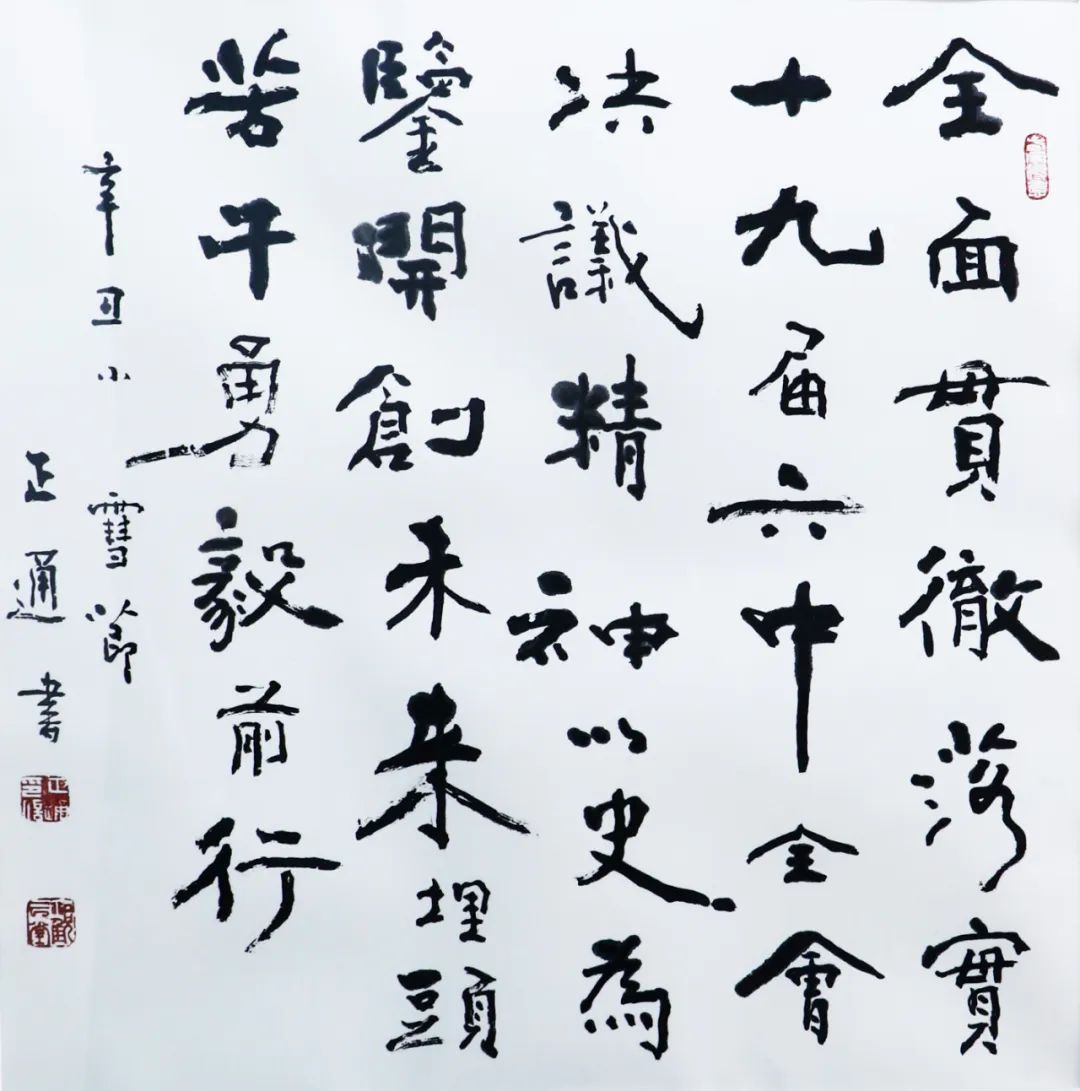 全面貫徹落實
十九届六中全會
決議精神以史為
鑒開創未來埋頭
苦干勇毅前行
辛丑小雪節
正通書